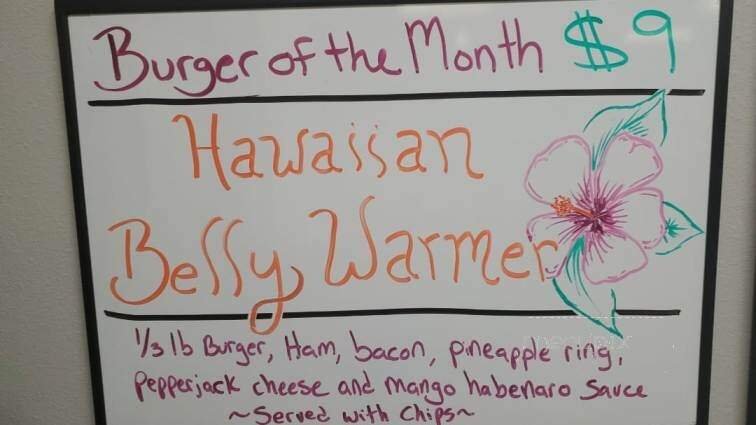 Burger of the Month $9
Hawaiian
Belly Warmer
1/3 lb Burger, Ham, bacon, pineapple ring,
Pepperjack cheese and mango habenaro Sauce
~Served with Chips~